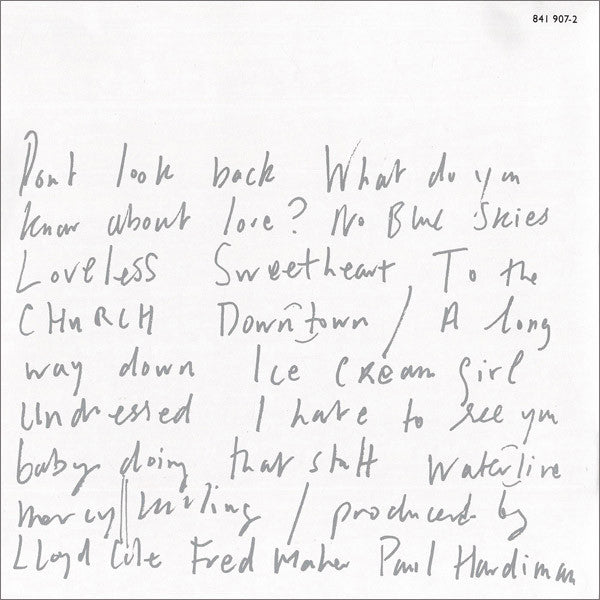 841 907-2
Dont look back What do you
know about love? No Blue Skies
Loveless Sweetheart To the
CHuRCH Downtown / A long
way down Ice Cream Girl
Undressed I hate to see you
baby doing that stuff Waterline
mercy killing / produced by
Lloyd Cole Fred Maher Paul Hardiman